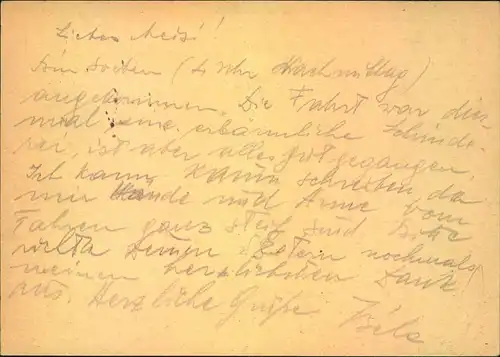 Lieber Meisi!
Bin soeben (4 Uhr Nachmittag)
angekommen. Die Fahrt war dies-
mal eine erbärmliche Schinde-
rei, ist aber alles gut gegangen.
Ich kann kaum schreiben, da
mir Hände und Arme vom
Fahren ganz steif sind. Bitte
Deinen Eltern nochmals
meinen herzlichsten Dank
aus. Herzliche Grüße